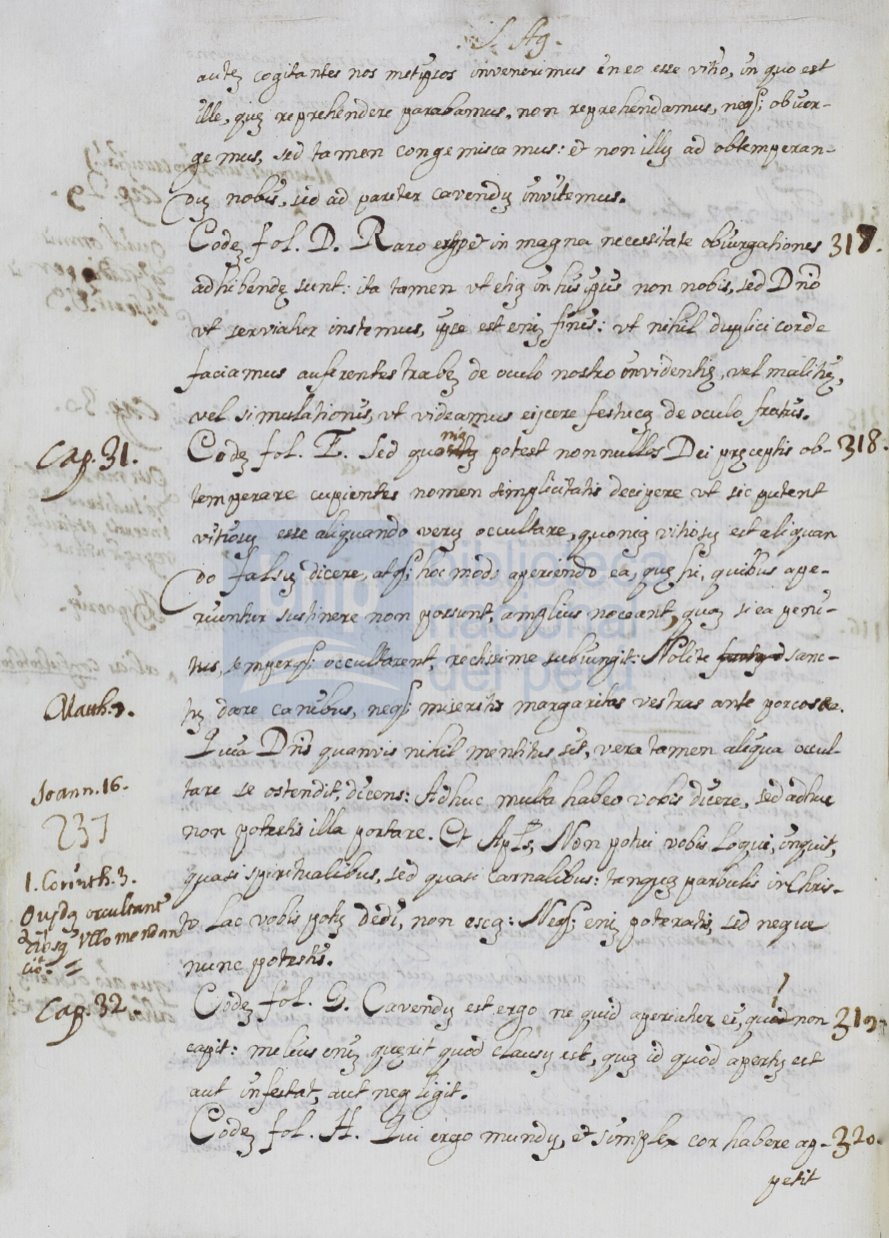 S. Ag.
autẽ cogitantes nos metipsos invenerimus in eo esse vitio, in quo est
ille, quẽ reprehendere parabamus, non reprehendamus, neq; obiur-
gemus, sed tamen congemiscamus: et non illũ ad obtemperan-
dũ nobis, sed ad pariter cavendũ invitemus.
Codẽ fol. D. Raro et in magna necessitate obiurgationes 317.
adhibendę sunt: ita tamen ut etiã in his ipsis non nobis, sed Dño
ut serviatur instemus, ipse est enĩ finis: ut nihil duplici corde
faciamus auferentes trabẽ de oculo nostro invidentię, vel malitię,
vel simulationis, ut videamus eijcere festucã de oculo fratris.
Cap. 31.
Codẽ fol. E. Sed quoniã potest nonnullos Dei pręceptis ob- 318.
temperare cupientes nomen simplicitatis decipere ut sic putent
vitiosũ esse aliquando verũ occultare, quoniã vitiosũ est aliquan
do falsũ dicere, atq; hoc modo aperiendo ea, quę hi, quibus ape-
riuntur sustinere non possunt, amplius noceant, quã si ea peni-
tus, semperq; occultarent, rectissime subiungit: Nolite sanc-
tũ dare canibus, neq; miseritis margaritas vestras ante porcos.
Matth. 7.
Quia Dñs quamvis nihil mentitus sit, vera tamen aliqua occul-
Joann. 16.
tare se ostendit, dicens: Adhuc multa habeo vobis dicere, sed adhuc
237
non potestis illa portare. Et Apłs, Non potui vobis loqui, inquit,
1. Corinth. 3.
quasi spiritualibus, sed quasi carnalibus: tanquã parvulis in Chris-
to lac vobis potũ dedi, non escã: Neq; enĩ poteratis, sed nequa
nunc potestis.
Cap. 32.
Codẽ fol. G. Cavendũ est ergo ne quid aperiatur ei, qui non 319.
capit: melius enĩ quęrit quod clausũ est, quã id quod apertũ est
aut infestat, aut negligit.
Codẽ fol. H. Qui ergo mundũ, et simplex cor habere ap- 320.
petit
bnp biblioteca
nacional
del perú